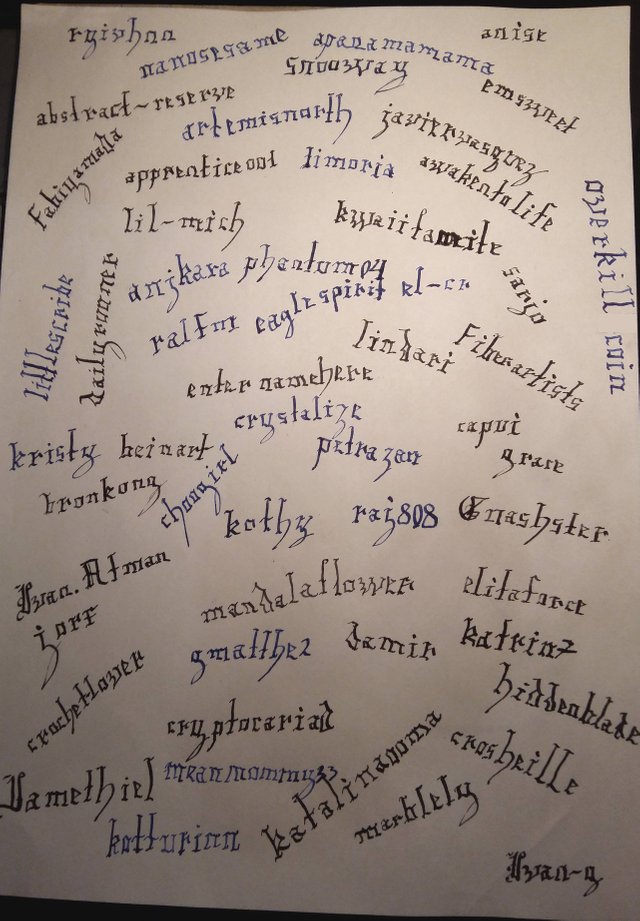 rgivhnn
anise
nanosesame
apanamamama
snoozway
emsweet
abstract-reserve
artemisnorth
javiervasquez
Fabiyamada
apprentice001
limoria
awakentolife
overkill coin
lil-mich
kwaiitamite
anjkara
phantom04
sarjo
littlescribe
dailyrunner
ralfnr
eaglespirit
el-cr
lindari
Fiberartists
enternamehere
crystalize
capvi
kristy
beinart
petrazan
grace
bronkong
choogirl
kothy
raj808
Gnashster
Ivan.Atman
mandalaflower
elitaforce
jorf
gmatthe2
damir
katrin7
crochetlover
hiddenblade
cryptocariad
crosheille
Vamethiel
meanmommy33
katalinaooma
marblely
kotturinn
Ivan-g